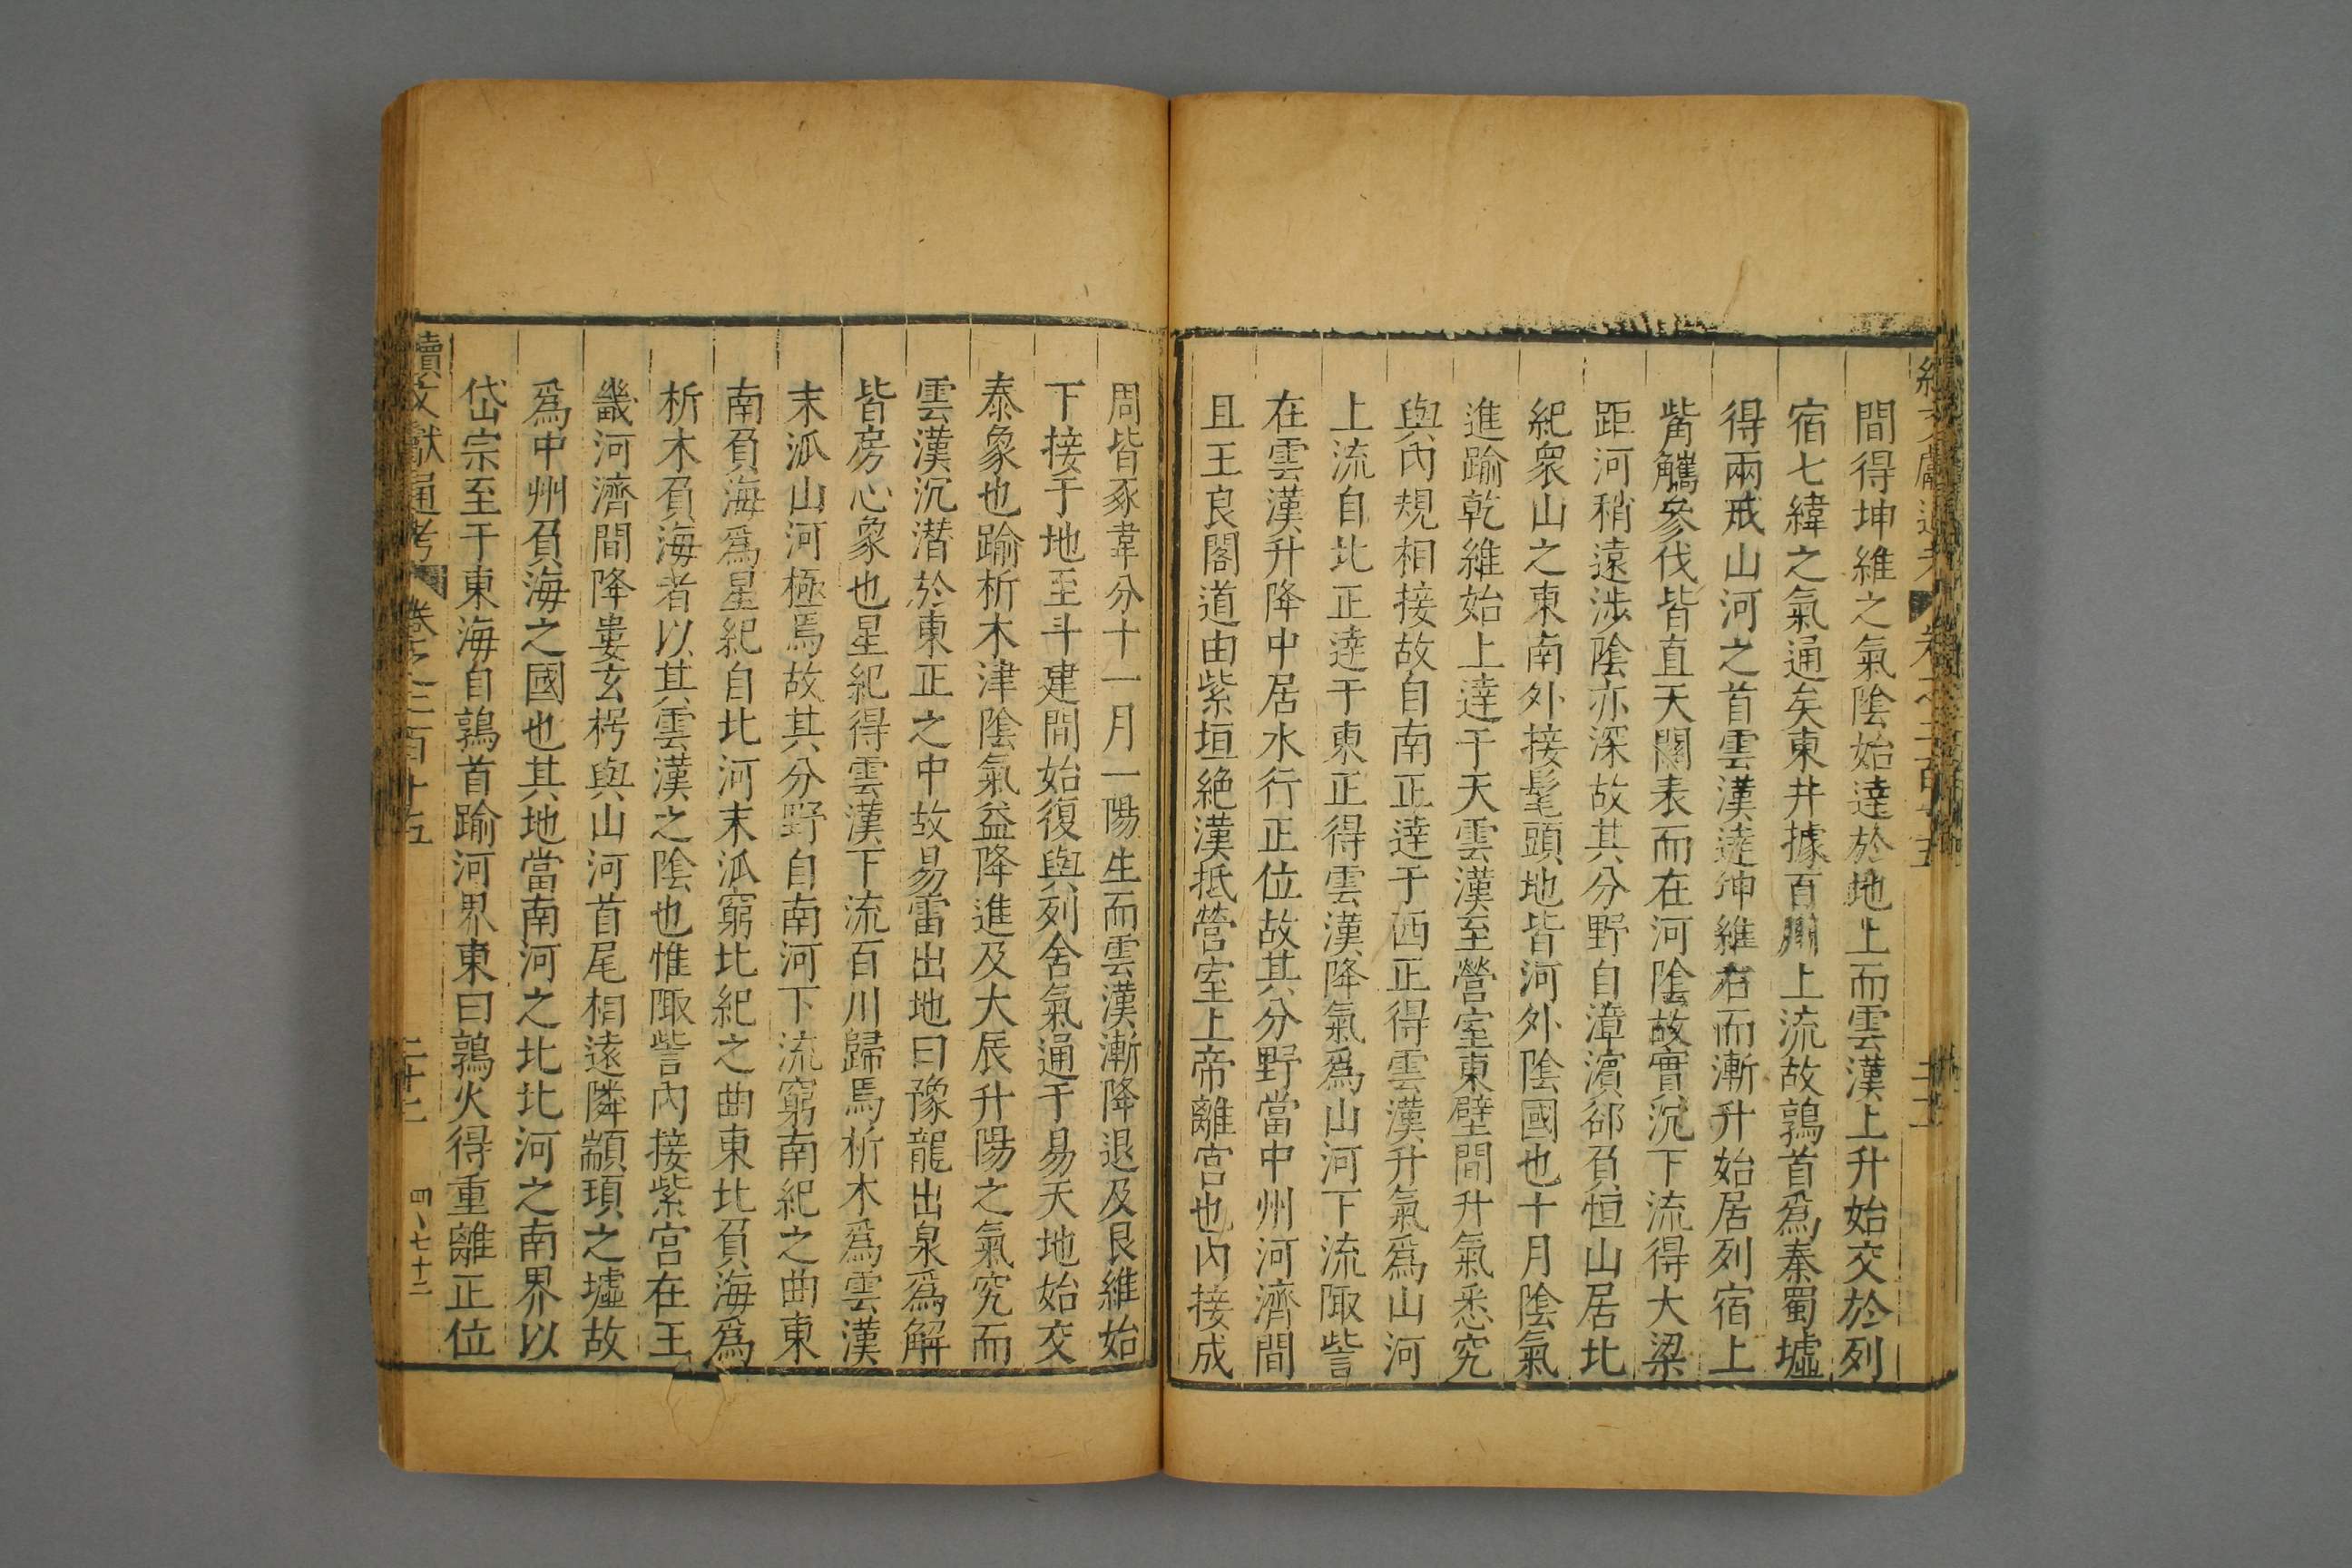 間得坤維之氣陰始達於地上而雲漢上升始交於列
宿七緯之氣通矣東井據百川上流故鶉首爲秦蜀墟
得兩戒山河之首雲漢達坤維右而漸升始居列宿上
觜觿參伐皆直天關表而在河陰故實沉下流得大梁
距河稍遠涉陰亦深故其分野自漳濱郤負恒山居北
紀衆山之東南外接髦頭地皆河外陰國也十月陰氣
進踰乾維始上達于天雲漢至營室東壁間升氣悉究
與內規相接故自南正達于西正得雲漢升氣爲山河
上流自北正達于東正得雲漢降氣爲山河下流陬訾
在雲漢升降中居水行正位故其分野當中州河濟間
且王良閣道由紫垣絶漢抵營室上帝離宮也內接成
周皆豕韋分十一月一陽生而雲漢漸降退及艮維始
下接于地至斗建間始復與列舍氣通于易天地始交
泰象也踰析木津陰氣益降進及大辰升陽之氣究而
雲漢沉潛於東正之中故易雷出地曰豫龍出泉爲解
皆房心象也星紀得雲漢下流百川歸焉析木爲雲漢
末泒山河極焉故其分野自南河下流窮南紀之曲東
南負海爲星紀自北河末泒窮北紀之曲東北負海爲
析木負海者以其雲漢之陰也惟陬訾內接紫宮在王
畿河濟間降婁玄枵與山河首尾相遠隣顓頊之墟故
爲中州負海之國也其地當南河之北北河之南界以
岱宗至于東海自鶉首踰河界東曰鶉火得重離正位
續文獻通考 卷之二百十五 二十二 四、七十二